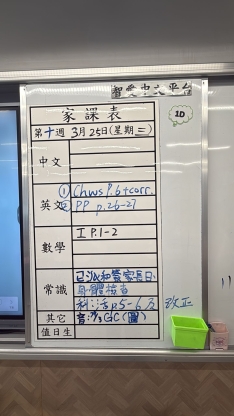 智愛中文平台
家課表
1D
第十週 3月25日(星期二)
中文
英文
① Chws P.6+corr.
② PP p.26-27
數學
I P.1-2
常識
身體檢查
科:活p.5-6及 改正
其它
值日生